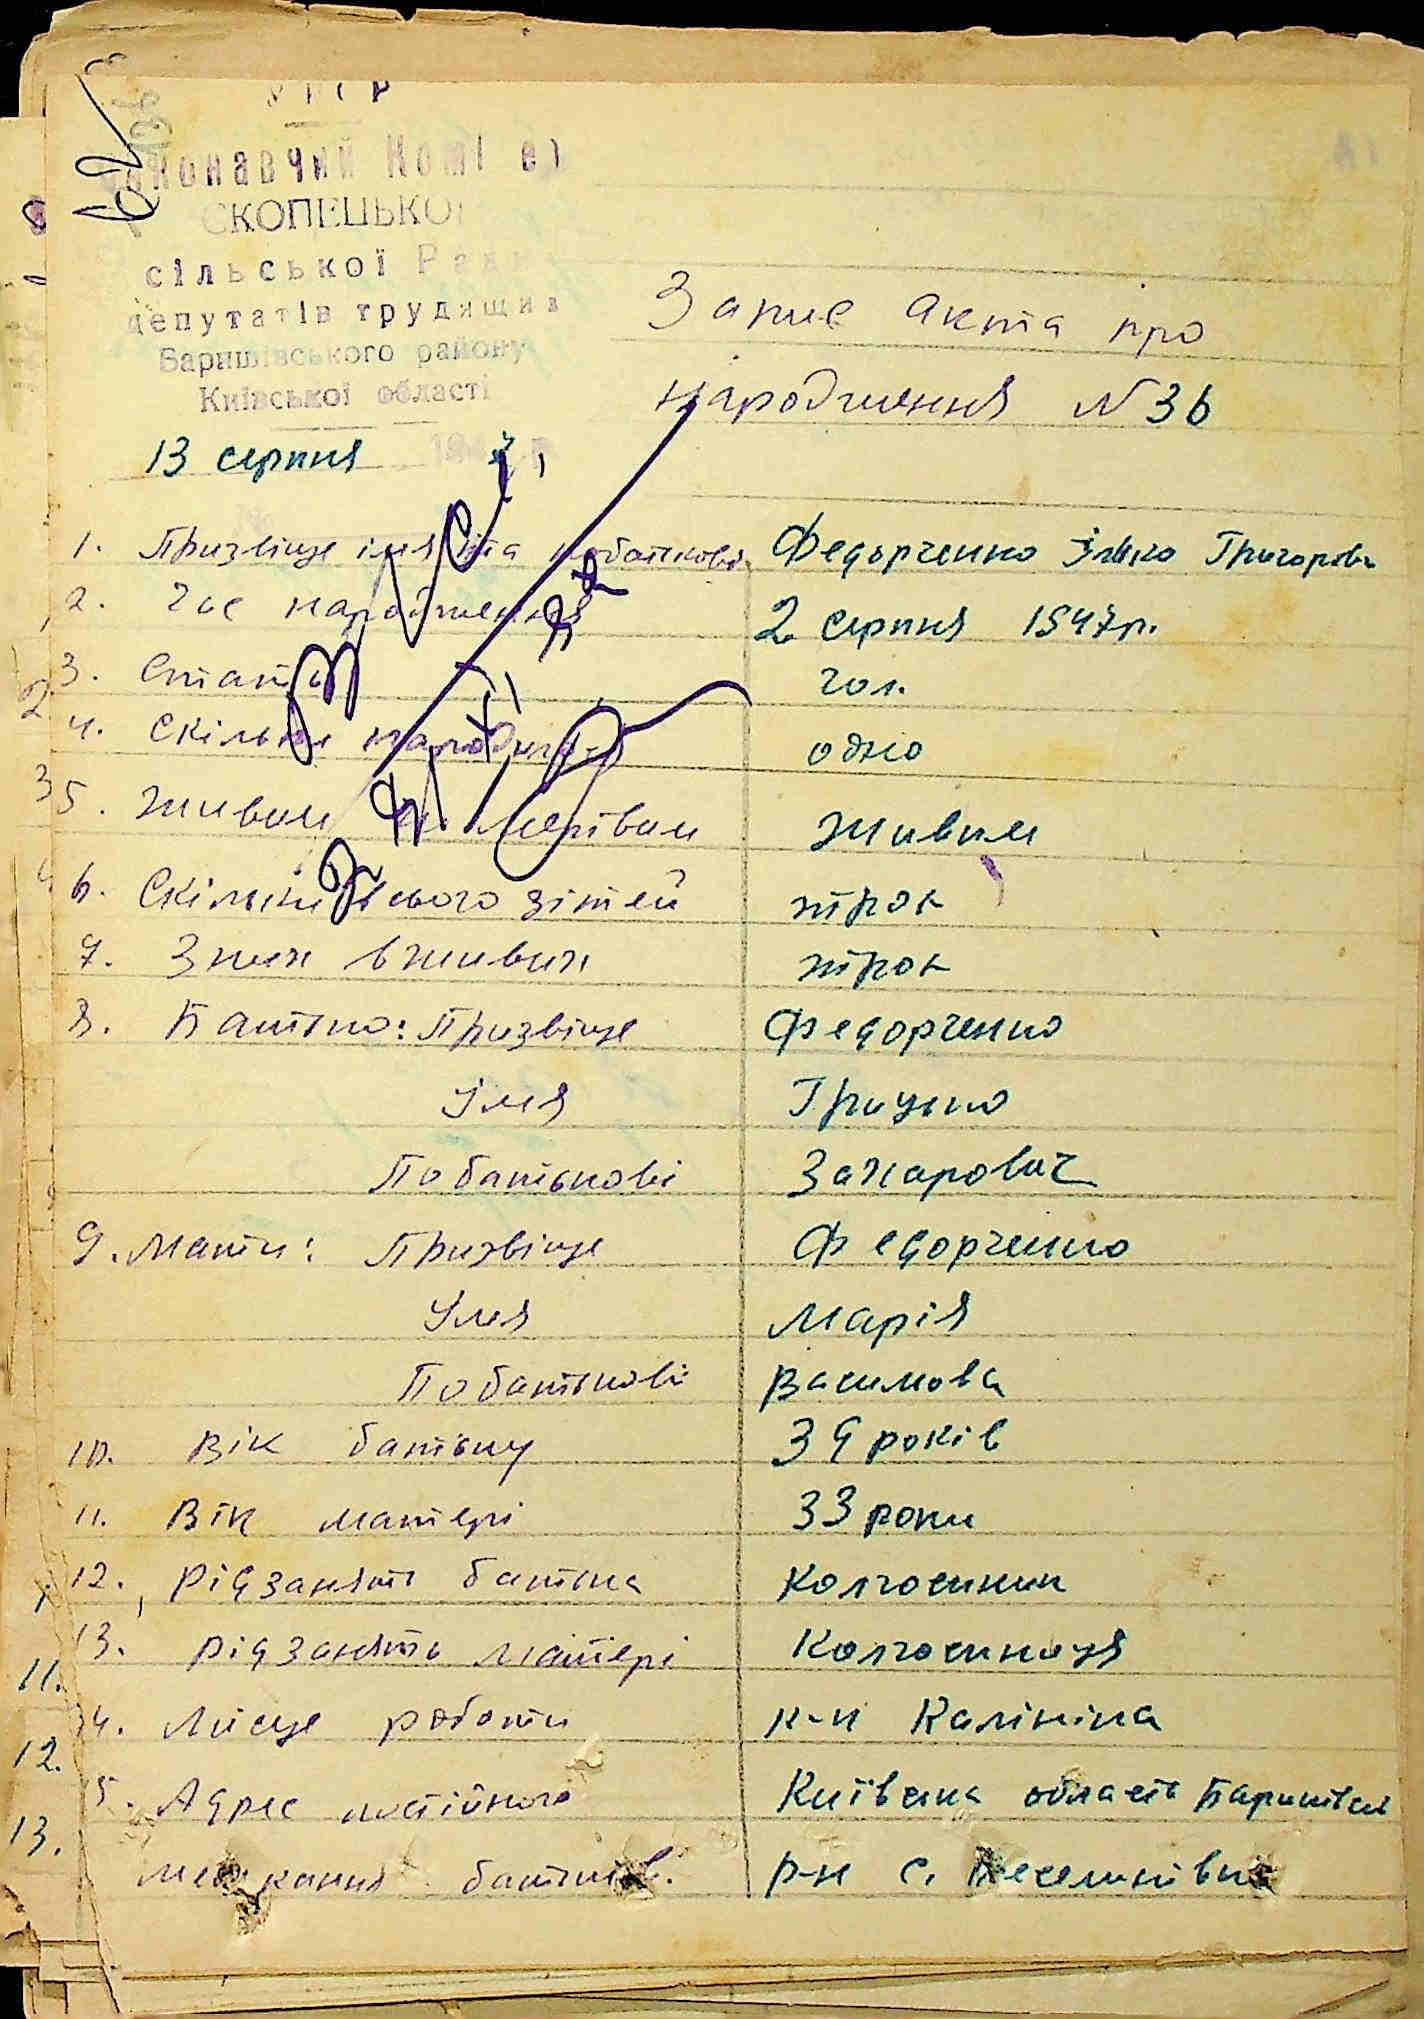 УРСР
Виконавчий Комітет
СКОПЕЦЬКОЇ
сільської Ради
депутатів трудящих
Баришівського району
Київської області
13 серпня 194
Запис акта про
народження N 36
1. Призвіще імя та побатькові Федорченко Ілько Григорові
2. Час народження 2 серпня 1947р.
3. Стать чол.
4. Скільки народилось одно
5. Живим чи мертвим живим
6. Скільки всього дітей трок
7. Зних вживих трок
8. Батько: Призвіще Федорченко
Імя Грицько
Побатькові Захарович
9. Мати: Призвіще Федорченко
Імя Марія
Побатькові Василова
10. Вік батьку 39 років
11. Вік матері 33 роки
12. Рідзанять батька Колгоспник
13. Рідзанять матері Колгоспниця
14. Місце роботи к-п Калініна
5. Адрес постійного Київська область Баришівськ
мешкання батьків. р-н с. Веселинівка
11.
12.
13.